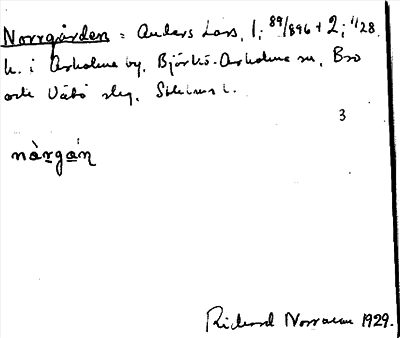 Norrgården = Anders Lars, 1; 89/896 + 2; 1/28.
h. i Arholma by, Björkö-Arholma sn, Bro
och Vätö slg, Sthlms l.
3
nàrgán
Rickard Norrman 1929.